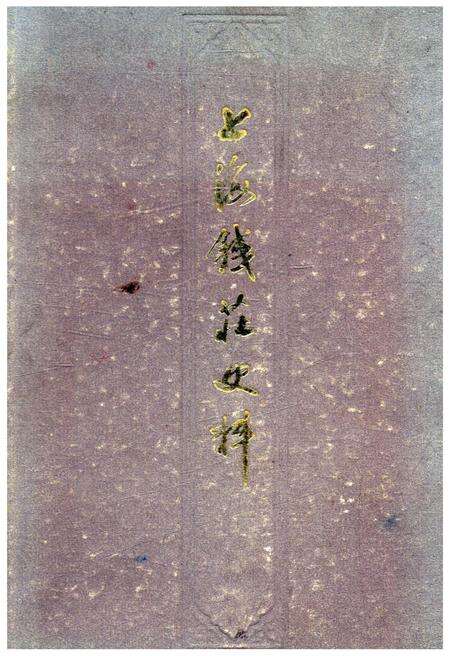 上海錢莊史料